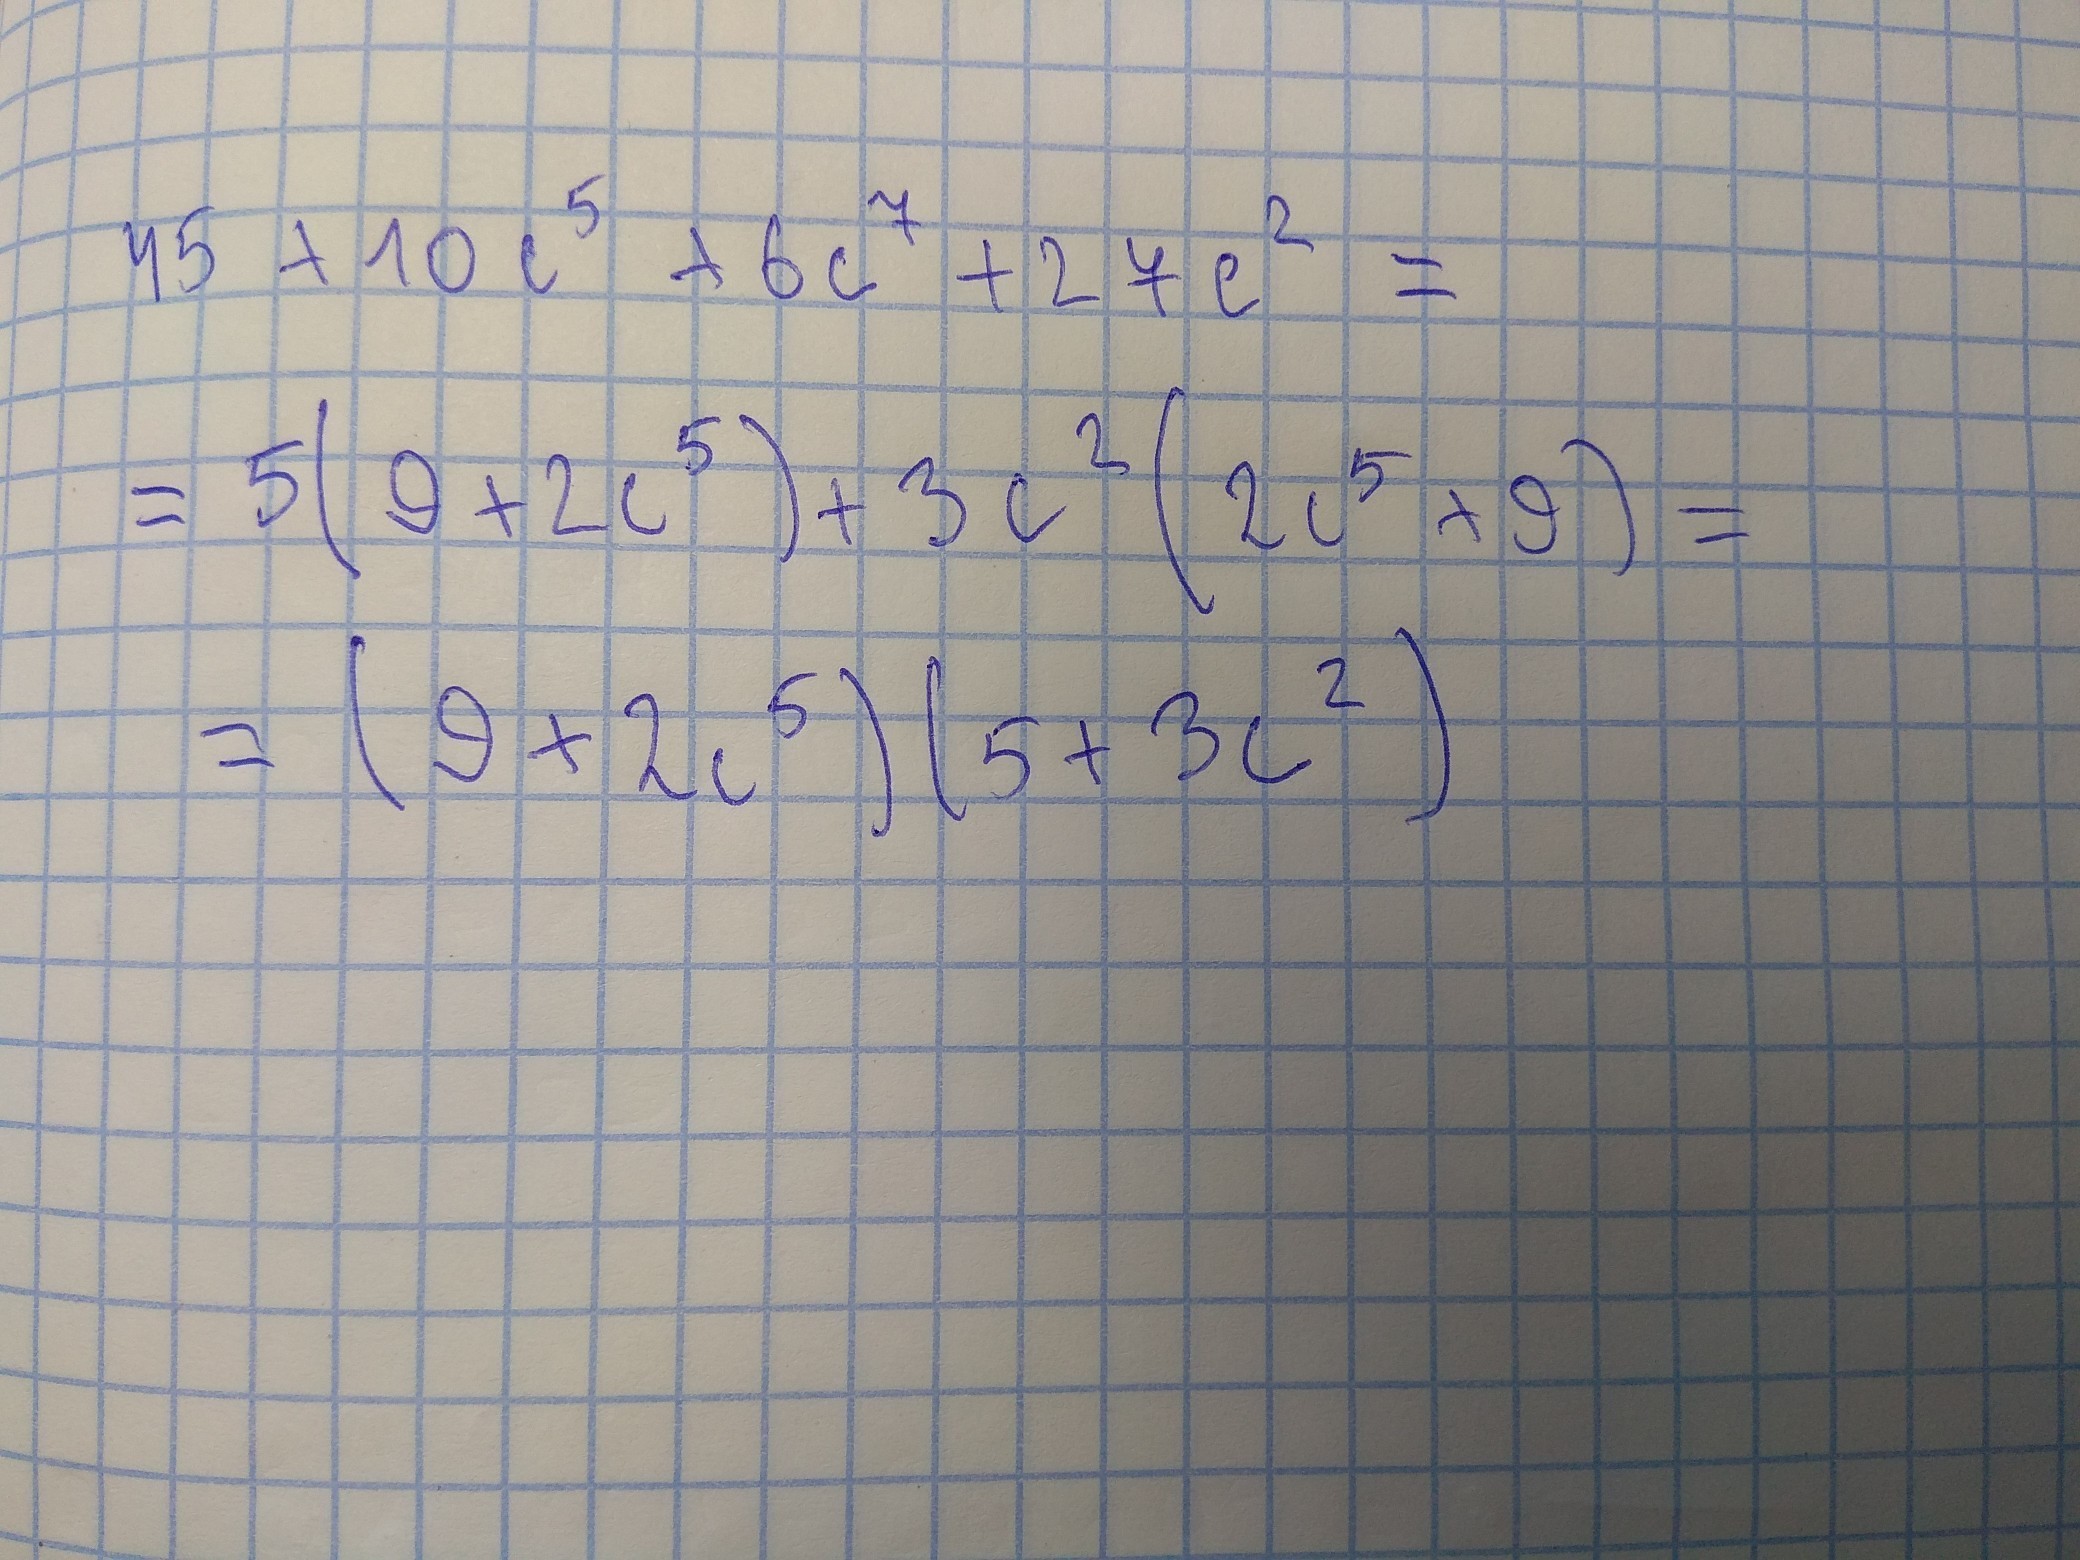 45 + 10c⁵ + 6c⁷ + 27c² =
= 5(9+2c⁵) + 3c²(2c⁵+9) =
= (9+2c⁵)(5+3c²)